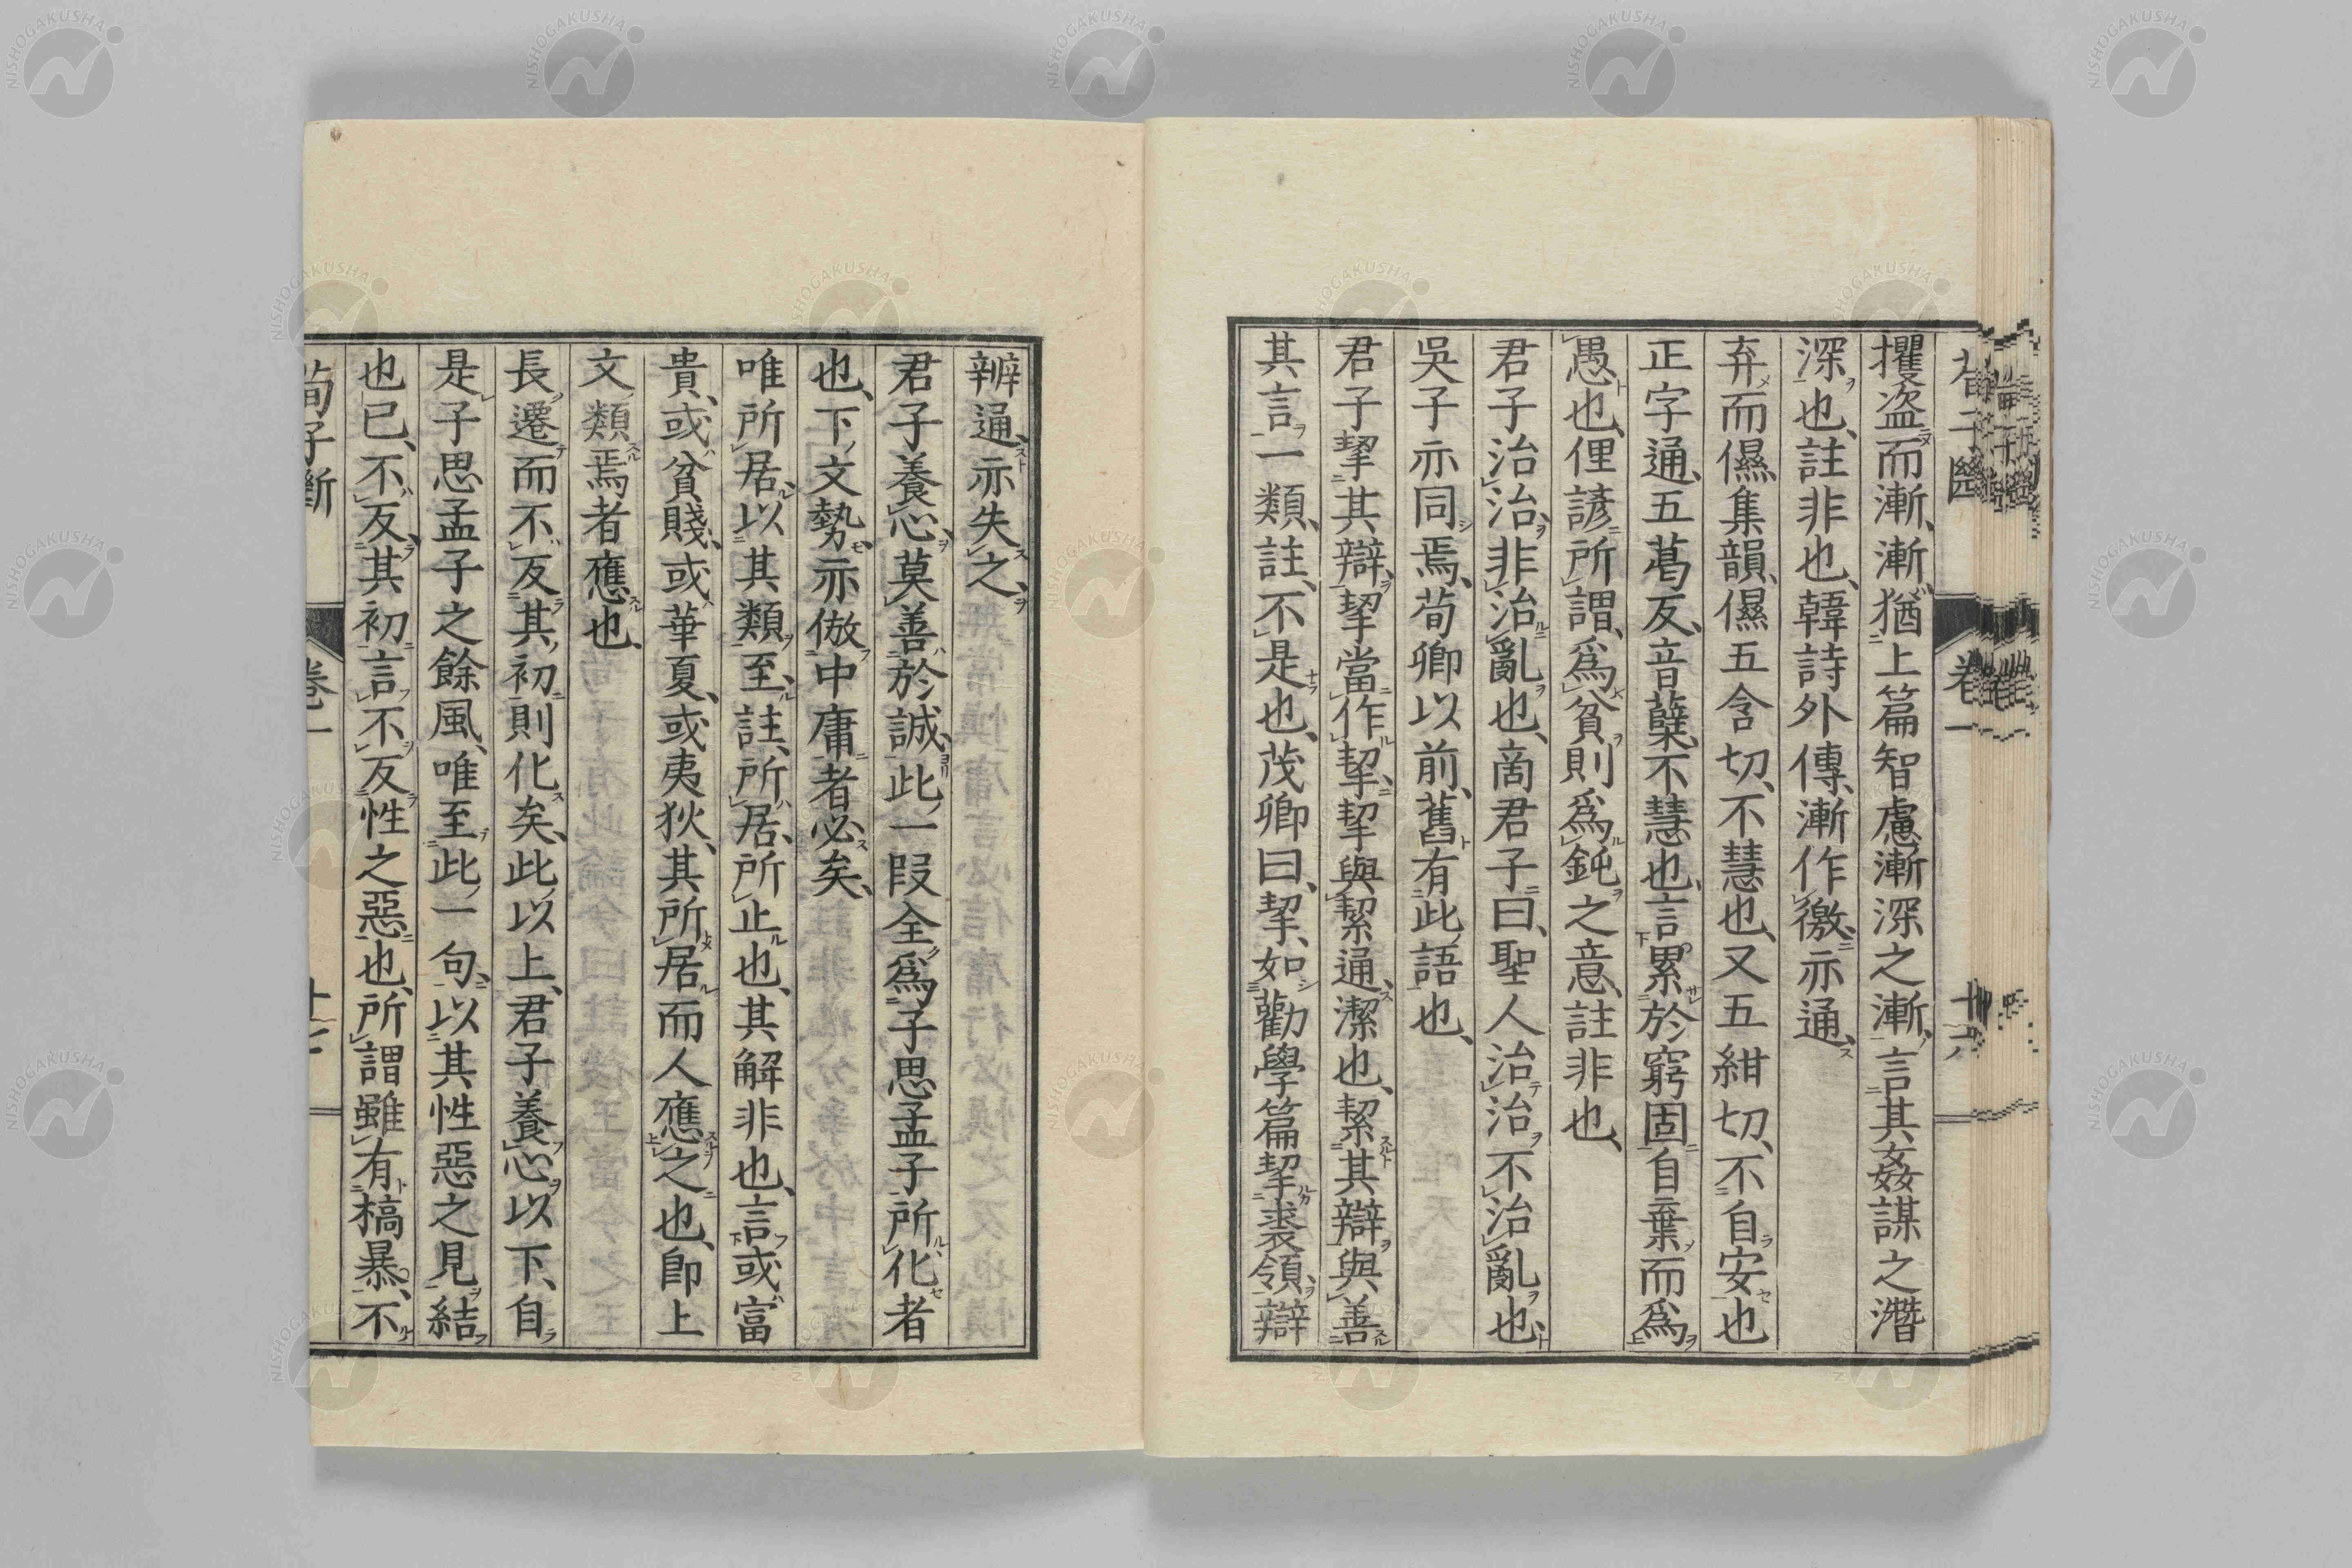 攫盗而漸、漸、猶上篇智慮漸深之漸、言其姦謀之潛
深也、註非也、韓詩外傳、漸作徼、亦通、
弃而儑、集韻、儑五含切、不慧也、又五紺切、不自安也
正字通、五葛反、音蘖、不慧也、言累於窮固自棄而爲
愚也、俚諺所謂、爲貧則爲鈍之意、註非也、
君子治治、非治亂也、啇君子曰、聖人治治、不治亂也、
吳子亦同焉、荀卿以前、舊有此語也、
君子挈其辯、挈當作挈、挈與絜通、潔也、絜其辯與善
其言一類、註、不是也、茂卿曰、挈、如勸學篇挈裘領、辯
辨通、亦失之、
君子養心、莫善於誠、此一段全爲子思孟子所化者
也、下文勢、亦倣中庸者必矣、
唯所居、以其類至、註、所居、所止也、其解非也、言或富
貴、或貧賤、或華夏、或夷狄、其所居而人應之也、卽上
文類焉者應也、
長遷而不反其初則化矣、此以上、君子養心以下、自
是子思孟子之餘風、唯至此一句、以其性惡之見結
也已、不反其初言不反性之惡也、所謂雖有槁暴、不
荀子斷
卷一